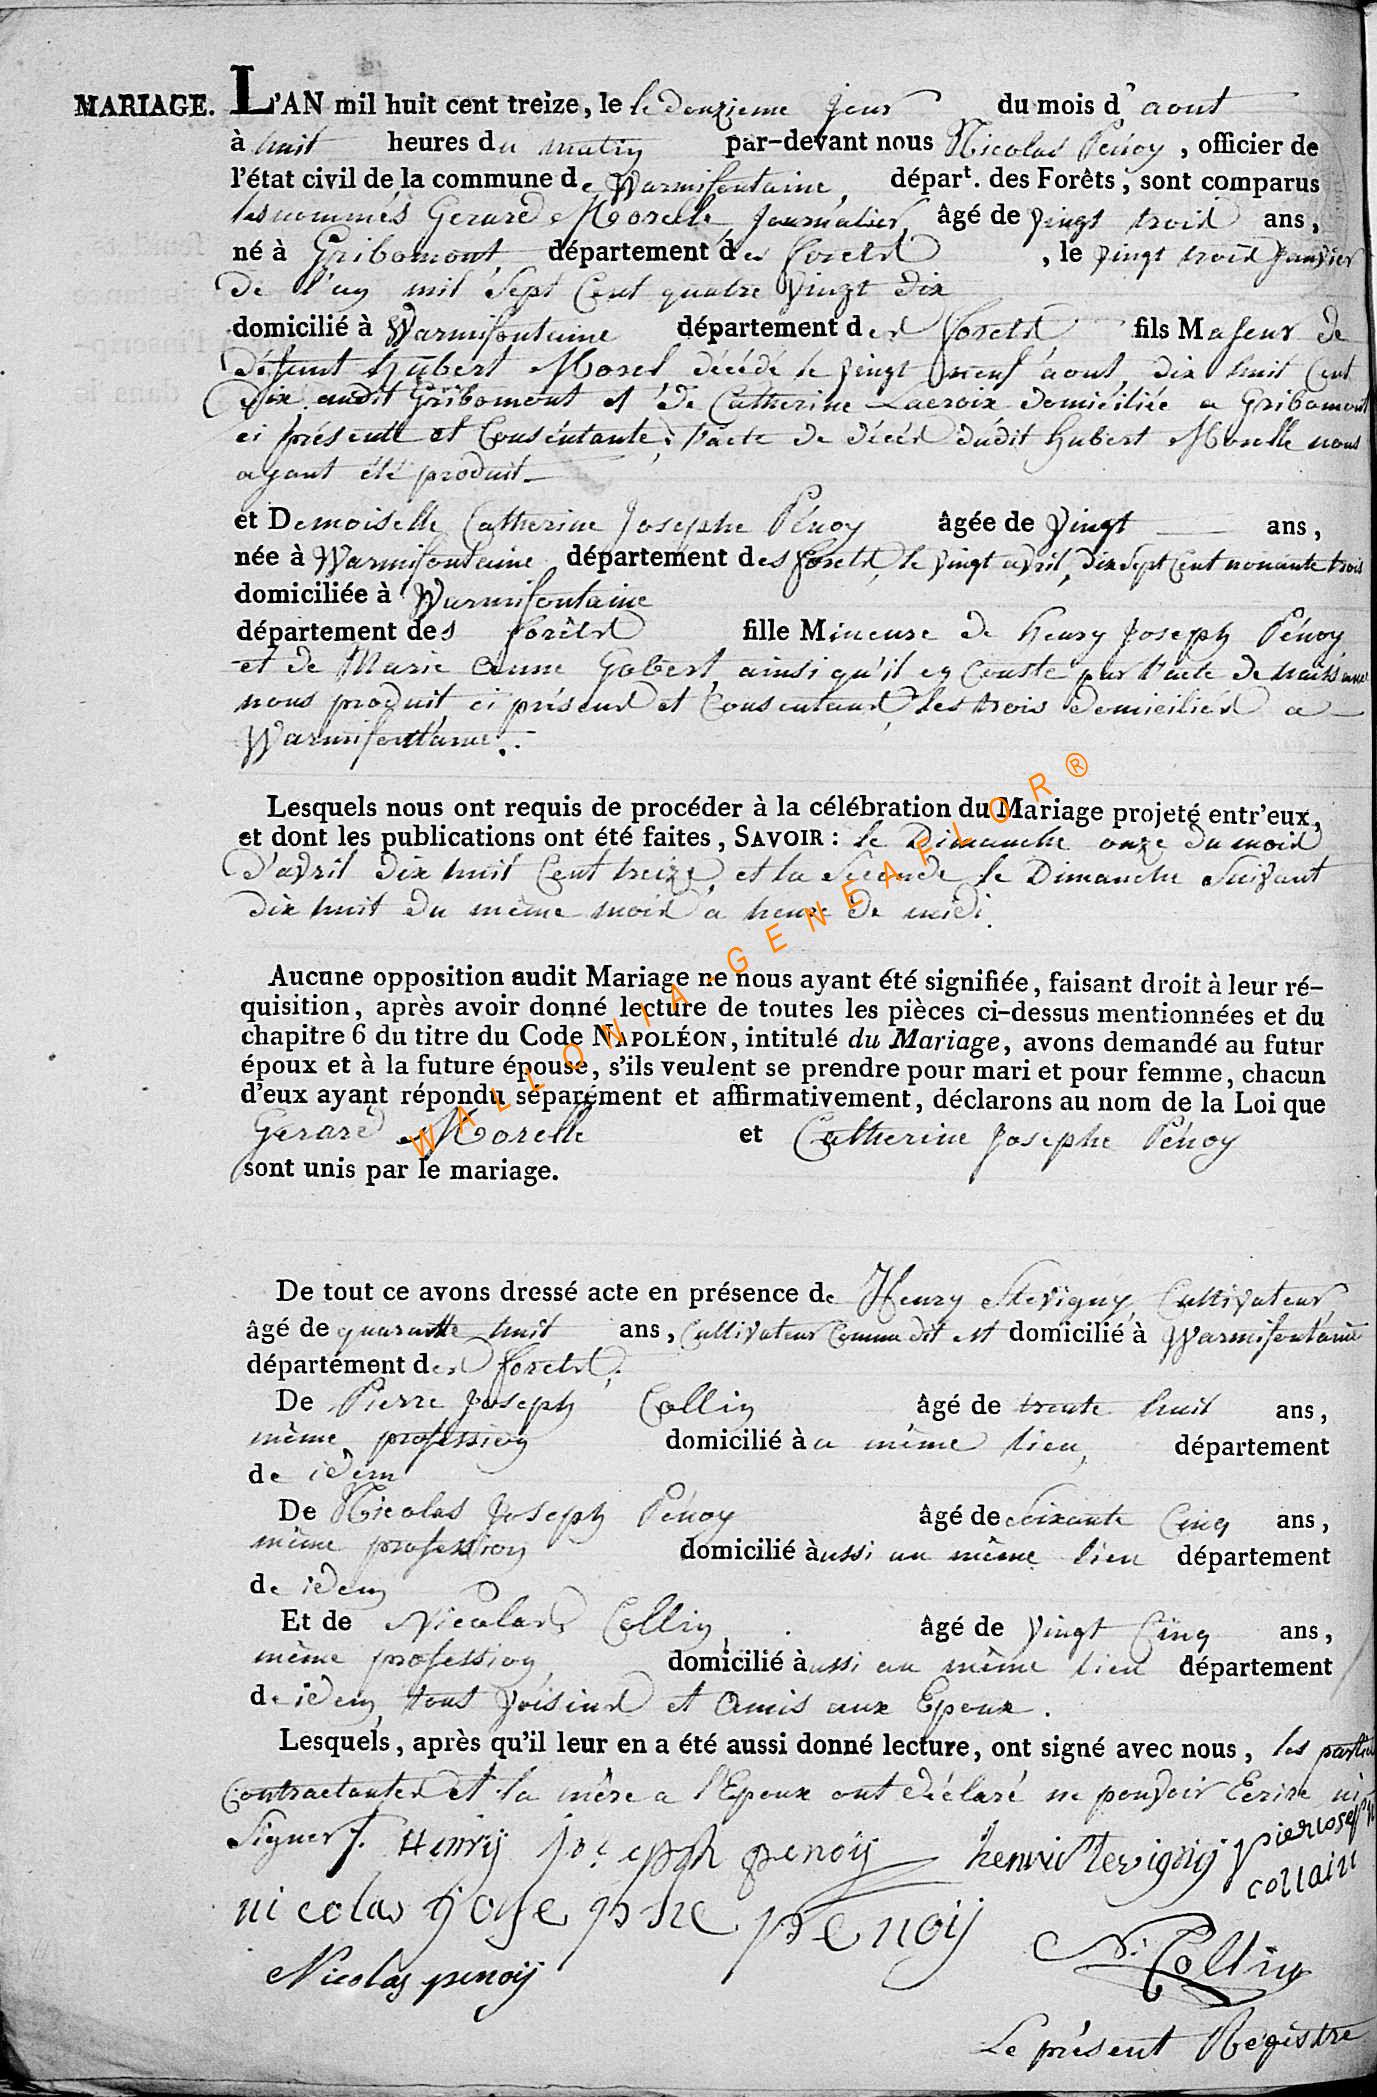 MARIAGE. L'AN mil huit cent treize, le le douzieme jour du mois d'aout
à huit heures du matin par-devant nous Nicolas Pénoy, officier de
l'état civil de la commune de Warmifontaine, départ. des Forêts, sont comparus
les nommés Gerard Morelle, journalier, âgé de vingt trois ans,
né à Gribomont, département des forets, le vingt trois janvier
de l'an mil sept cent quatre vingt dix
domicilié à Warmifontaine département des forets fils Majeur de
défunt hubert Morel décédé le vingt neuf aout dix huit cent
dix audit Gribomont et de Catherine Lacroix domiciliée a Gribomont
ci présente et Consentante; l'acte de décès dudit hubert Morelle nous
ayant été produit
et Demoiselle Catherine Josephe Pénoy âgée de vingt ans,
née à Warmifontaine département des forets, le vingt avril, dix sept cent nonante trois
domiciliée à Warmifontaine
département des forêts fille Mineure de henry Joseph Pénoy
et de Marie Anne Gobert, ainsi qu'il en Conste par l'acte de naissance
nous produit ci présens et Consentans, les trois domiciliés a
Warmifontaine.
Lesquels nous ont requis de procéder à la célébration du Mariage projeté entr'eux,
et dont les publications ont été faites, SAVOIR: le Dimanche onze du mois
d'avril dix huit cent treize, et la Seconde le Dimanche Suivant
dix huit du même mois a heure de midi.
Aucune opposition audit Mariage ne nous ayant été signifiée, faisant droit à leur ré-
quisition, après avoir donné lecture de toutes les pièces ci-dessus mentionnées et du
chapitre 6 du titre du Code NAPOLÉON, intitulé du Mariage, avons demandé au futur
époux et à la future épouse, s'ils veulent se prendre pour mari et pour femme, chacun
d'eux ayant répondu séparément et affirmativement, déclarons au nom de la Loi que
Gerard Morelle et Catherine Josephe Pénoy
sont unis par le mariage.
WALLONIA-GENEAFLOR®
De tout ce avons dressé acte en présence de Henry Stevigny, Cultivateur,
âgé de quarante huit ans, Cultivateur Comme dit et domicilié à Warmifontaine
département des forets.
De Pierre Joseph Collin âgé de trente huit ans,
même profession domicilié à a même lieu, département
de idem
De Nicolas Joseph Pénoy âgé de soixante Cinq ans,
même profession domicilié aussi au même lieu département
de idem
Et de Nicolas Collin, âgé de vingt Cinq ans,
même profession, domicilié aussi au même lieu département
de idem, tous voisins et Amis aux Epoux.
Lesquels, après qu'il leur en a été aussi donné lecture, ont signé avec nous, les parties
Contractantes et la mère a l'Epoux ont déclaré ne pouvoir Ecrire ni
Signer. Henrij Joseph penoij henri stevignij pier ioseph
collain
nicolas Josephe penoij
N: Collin
Nicolas penoij
Le présent Régistre